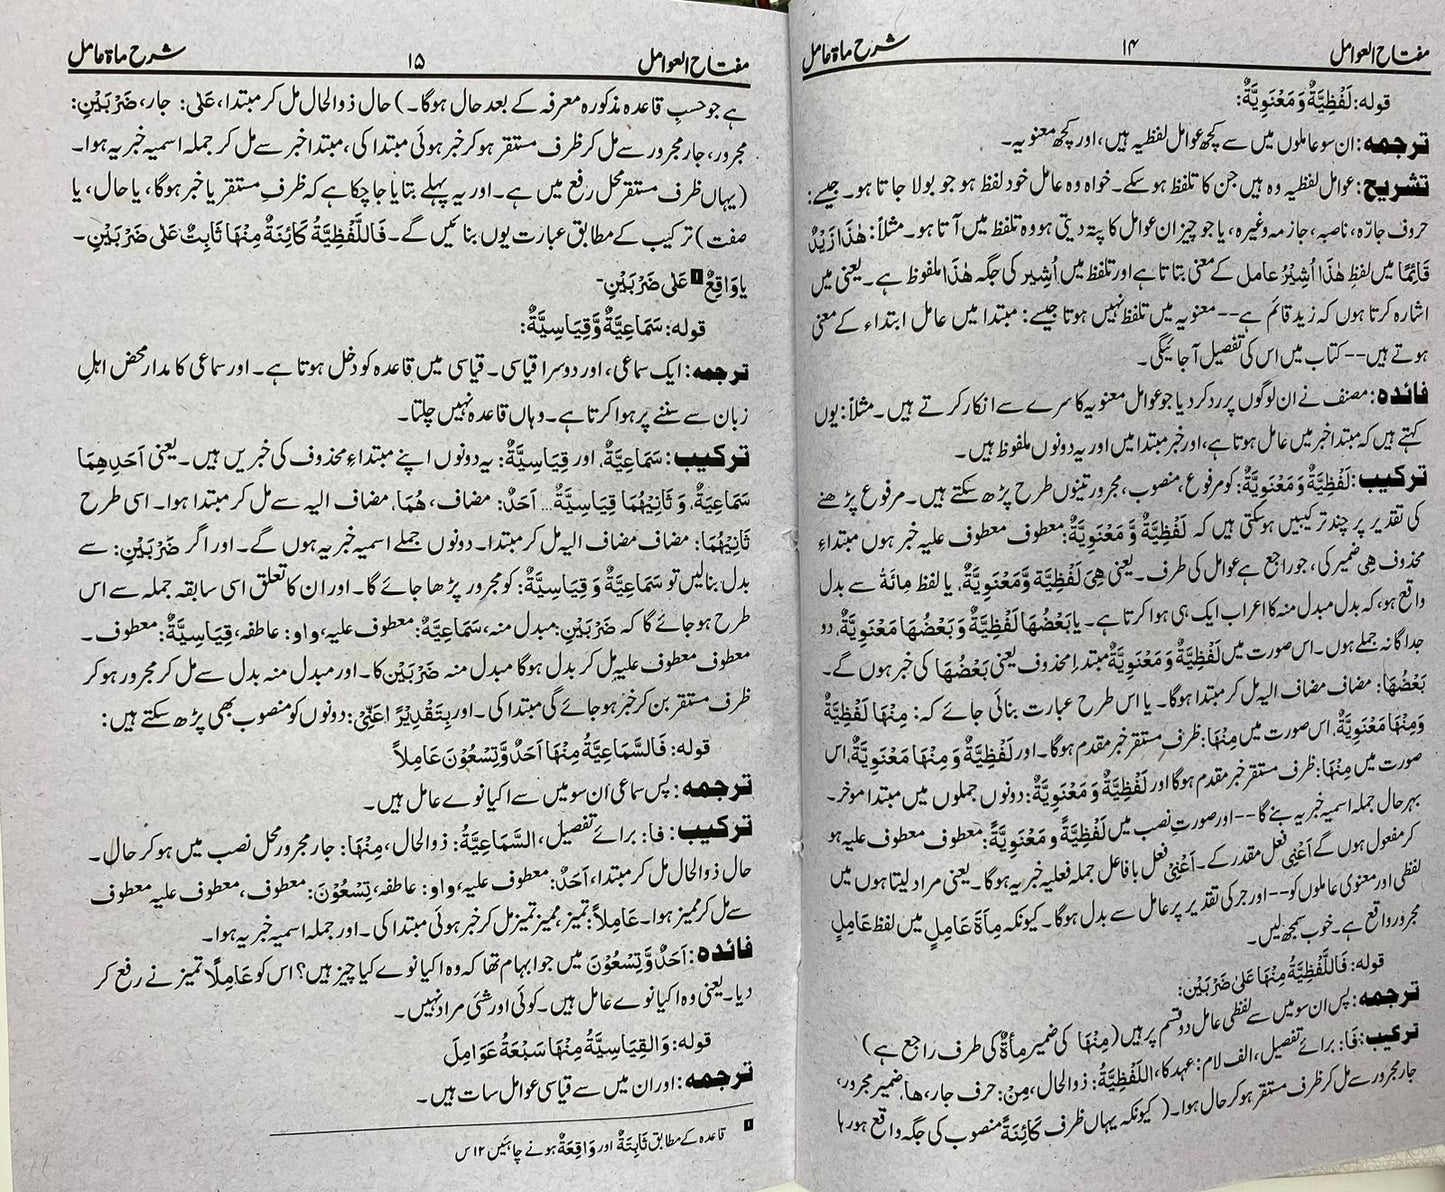 مفتاح العوامل ۱۴ شرح مأۃ عامل
قوله: لَفْظِيَّةٌ وَ مَعْنَوِيَّةٌ:
ترجمہ: ان سو عاملوں میں سے کچھ عوامل لفظیہ ہیں، اور کچھ معنویہ۔
تشریح: عوامل لفظیہ وہ ہیں جن کا تلفظ ہو سکے۔ خواہ وہ عامل خود لفظ ہو جو بولا جاتا ہو۔ جیسے:
حروف جارّہ، ناصبہ، جازمہ وغیرہ، یا جو چیز ان عوامل کا پتہ دیتی ہو وہ تلفظ میں آتا ہو۔ مثلاً: هٰذَا زَيْدٌ
قَائِمًا میں لفظِ هٰذَا اُشِيْرُ عامل کے معنی بتاتا ہے اور تلفظ میں اُشِیر کی جگہ هٰذَا ملفوظ ہے۔ یعنی میں
اشارہ کرتا ہوں کہ زید قائم ہے-- معنویہ میں تلفظ نہیں ہوتا جیسے: مبتدا میں عامل ابتداء کے معنی
ہوتے ہیں-- کتاب میں اس کی تفصیل آجائیگی۔
فائدہ: مصنف نے ان لوگوں پر رد کر دیا جو عوامل معنویہ کا سرے سے انکار کرتے ہیں۔ مثلاً: یوں
کہتے ہیں کہ مبتدا خبر میں عامل ہوتا ہے، اور خبر مبتدا میں اور یہ دونوں ملفوظ ہیں۔
ترکیب: لَفْظِيَّةٌ وَ مَعْنَوِيَّةٌ: کو مرفوع، منصوب، مجرور تینوں طرح پڑھ سکتے ہیں۔ مرفوع پڑھنے
کی تقدیر پر چند ترکیبیں ہو سکتی ہیں کہ لَفْظِيَّةٌ وَّ مَعْنَوِيَّةٌ: معطوف معطوف علیہ خبر ہوں مبتداءِ
محذوف هِیَ ضمیر کی، جو راجع ہے عوامل کی طرف۔ یعنی هِيَ لَفْظِيَّة وَّمَعْنَوِيَّةٌ، یا لفظ مِائَةُ سے بدل
واقع ہو، کہ بدل مبدل منہ کا اعراب ایک ہی ہوا کرتا ہے۔ یا بَعْضُهَا لَفْظِيَّةٌ وَ بَعْضُهَا مَعْنَوِيَّةٌ، دو
جداگانہ جملے ہوں۔ اس صورت میں لَفْظِيَّةٌ وَ مَعْنَوِيَّةٌ مبتدا محذوف یعنی بَعْضُهَا کی خبر ہوں گے۔
بَعْضُهَا: مضاف مضاف الیہ مل کر مبتدا ہوگا۔ یا اس طرح عبارت بنائی جائے کہ: مِنْهَا لَفْظِيَّةٌ
وَ مِنْهَا مَعْنَوِيَّةٌ، اس صورت میں مِنْهَا: ظرف مستقر خبر مقدم ہوگا۔ اور لَفْظِيَّةٌ وَ مِنْهَا مَعْنَوِيَّةٌ، اس
صورت میں مِنْهَا: ظرف مستقر خبر مقدم ہوگا اور لَفْظِيَّةٌ وَ مَعْنَوِيَّةٌ: دونوں جملوں میں مبتدا موخر۔
بہر حال جملہ اسمیہ خبریہ بنے گا-- اور صورتِ نصب میں لَفْظِيَّةً وَ مَعْنَوِيَّةً: معطوف معطوف علیہ ہو
کر مفعول ہوں گے اَعْنِی فعل مقدر کے۔ اَعْنِیْ فعل با فاعل جملہ فعلیہ خبریہ ہوگا۔ یعنی مراد لیتا ہوں میں
لفظی اور معنوی عاملوں کو-- اور جر کی تقدیر پر عامل سے بدل ہوگا۔ کیونکہ مِأۃَ عَامِلٍ میں لفظ عَامِلٍ
مجرور واقع ہے۔ خوب سمجھ لیں۔
قوله: فَاللَّفْظِيَّةُ مِنْهَا عَلٰى ضَرْبَيْنِ:
ترجمہ: پس ان سو میں سے لفظی عامل دو قسم پر ہیں (مِنْهَا کی ضمیر مِأۃٌ کی طرف راجع ہے)
ترکیب: فَا: برائے تفصیل، الف لام: عہد کا، اللَّفْظِيَّةُ: ذوالحال، مِنْ: حرف جار، ها: ضمیر مجرور،
جار مجرور سے مل کر ظرف مستقر ہو کر حال ہوا۔ ( کیونکہ یہاں ظرف کَائِنَةً منصوب کی جگہ واقع ہو رہا
مفتاح العوامل ۱۵ شرح مأۃ عامل
ہے جو حسبِ قاعدہ مذکورہ معرفہ کے بعد حال ہوگا۔) حال ذوالحال مل کر مبتدا، عَلٰی: جار، ضَرْبَيْنِ:
مجرور، جار مجرور سے مل کر ظرف مستقر ہو کر خبر ہوئی مبتدا کی، مبتدا خبر سے مل کر جملہ اسمیہ خبریہ ہوا۔
(یہاں ظرف مستقر محل رفع میں ہے۔ اور یہ پہلے بتایا جا چکا ہے کہ ظرفِ مستقر یا خبر ہوگا، یا حال، یا
صفت) ترکیب کے مطابق عبارت یوں بنائیں گے۔ فَاللَّفْظِيَّةُ كَائِنَةٌ مِنْهَا ثَابِتٌ عَلٰى ضَرْبَيْنِ۔
یا وَاقِعٌ ۱ عَلٰى ضَرْبَيْنِ-
قوله: سَمَاعِيَّةٌ وَّقِيَاسِيَّةٌ:
ترجمہ: ایک سماعی، اور دوسرا قیاسی۔ قیاسی میں قاعدہ کو دخل ہوتا ہے۔ اور سماعی کا مدار محض اہلِ
زبان سے سننے پر ہوا کرتا ہے۔ وہاں قاعدہ نہیں چلتا۔
ترکیب: سَمَاعِيَّةٌ، اور قِيَاسِيَّةٌ: یہ دونوں اپنے مبتداءِ محذوف کی خبریں ہیں۔ یعنی اَحَدِهِمَا
سَمَاعِيَةٌ، وَ ثَانِيْهُمَا قِيَاسِيَّةٌ... اَحَدٌ: مضاف، هُمَا، مضاف الیہ سے مل کر مبتدا ہوا۔ اسی طرح
ثَانِيْهُمَا: مضاف مضاف الیہ مل کر مبتدا۔ دونوں جملے اسمیہ خبریہ ہوں گے۔ اور اگر ضَرْبَيْنِ: سے
بدل بنالیں تو سَمَاعِيَّةٌ وَ قِيَاسِيَّةٌ: کو مجرور پڑھا جائے گا۔ اور ان کا تعلق اسی سابقہ جملہ سے اس
طرح ہو جائے گا کہ ضَرْبَيْنِ: مبدل منہ، سَمَاعِيَّةٌ: معطوف علیہ، واو: عاطفہ، قِيَاسِيَّةٌ: معطوف۔
معطوف معطوف علیہ مل کر بدل ہوگا مبدل منہ ضَرْبَيْن کا۔ اور مبدل منہ بدل سے مل کر مجرور ہو کر
ظرف مستقر بن کر خبر ہو جائے گی مبتدا کی۔ اور بِتَقْدِيْرً اَعْنِيْ: دونوں کو منصوب بھی پڑھ سکتے ہیں:
قوله: فَالسَّمَاعِيَّةُ مِنْهَا اَحَدٌ وَّتِسْعُوْنَ عَامِلاً
ترجمہ: پس سماعی اُن سو میں سے اکیانوے عامل ہیں۔
ترکیب: فا: برائے تفصیل، السَّمَاعِيَّةُ: ذوالحال، مِنْهَا: جار مجرور محل نصب میں ہو کر حال۔
حال ذوالحال مل کر مبتدا، اَحَدٌ: معطوف علیہ، واو: عاطفہ، تِسْعُوْنَ: معطوف، معطوف علیہ معطوف
سے مل کر ممیز ہوا۔ عَامِلاً: تمیز، ممیز تمیز مل کر خبر ہوئی مبتدا کی۔ اور جملہ اسمیہ خبریہ ہوا۔
فائدہ: اَحَدٌ وَّتِسْعُوْنَ میں جو ابہام تھا کہ وہ اکیانوے کیا چیز ہیں؟ اس کو عَامِلًا تمیز نے رفع کر
دیا۔ یعنی وہ اکیانوے عامل ہیں۔ کوئی اور شئی مراد نہیں۔
قوله: وَ القِيَاسِيَّةُ مِنْهَا سَبْعَةُ عَوَامِلَ
ترجمہ: اور ان میں سے قیاسی عوامل سات ہیں۔
۱ قاعدہ کے مطابق ثَابِتَةٌ اور وَاقِعَةٌ ہونے چاہئیں ۱۲ س